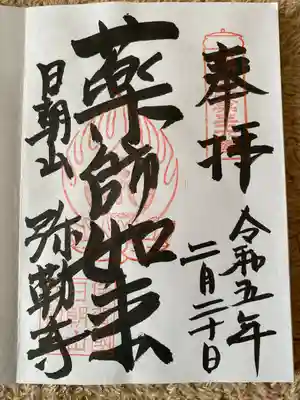 奉拝
令和五年
二月二十日
薬師如来
日朝山 弥勒寺